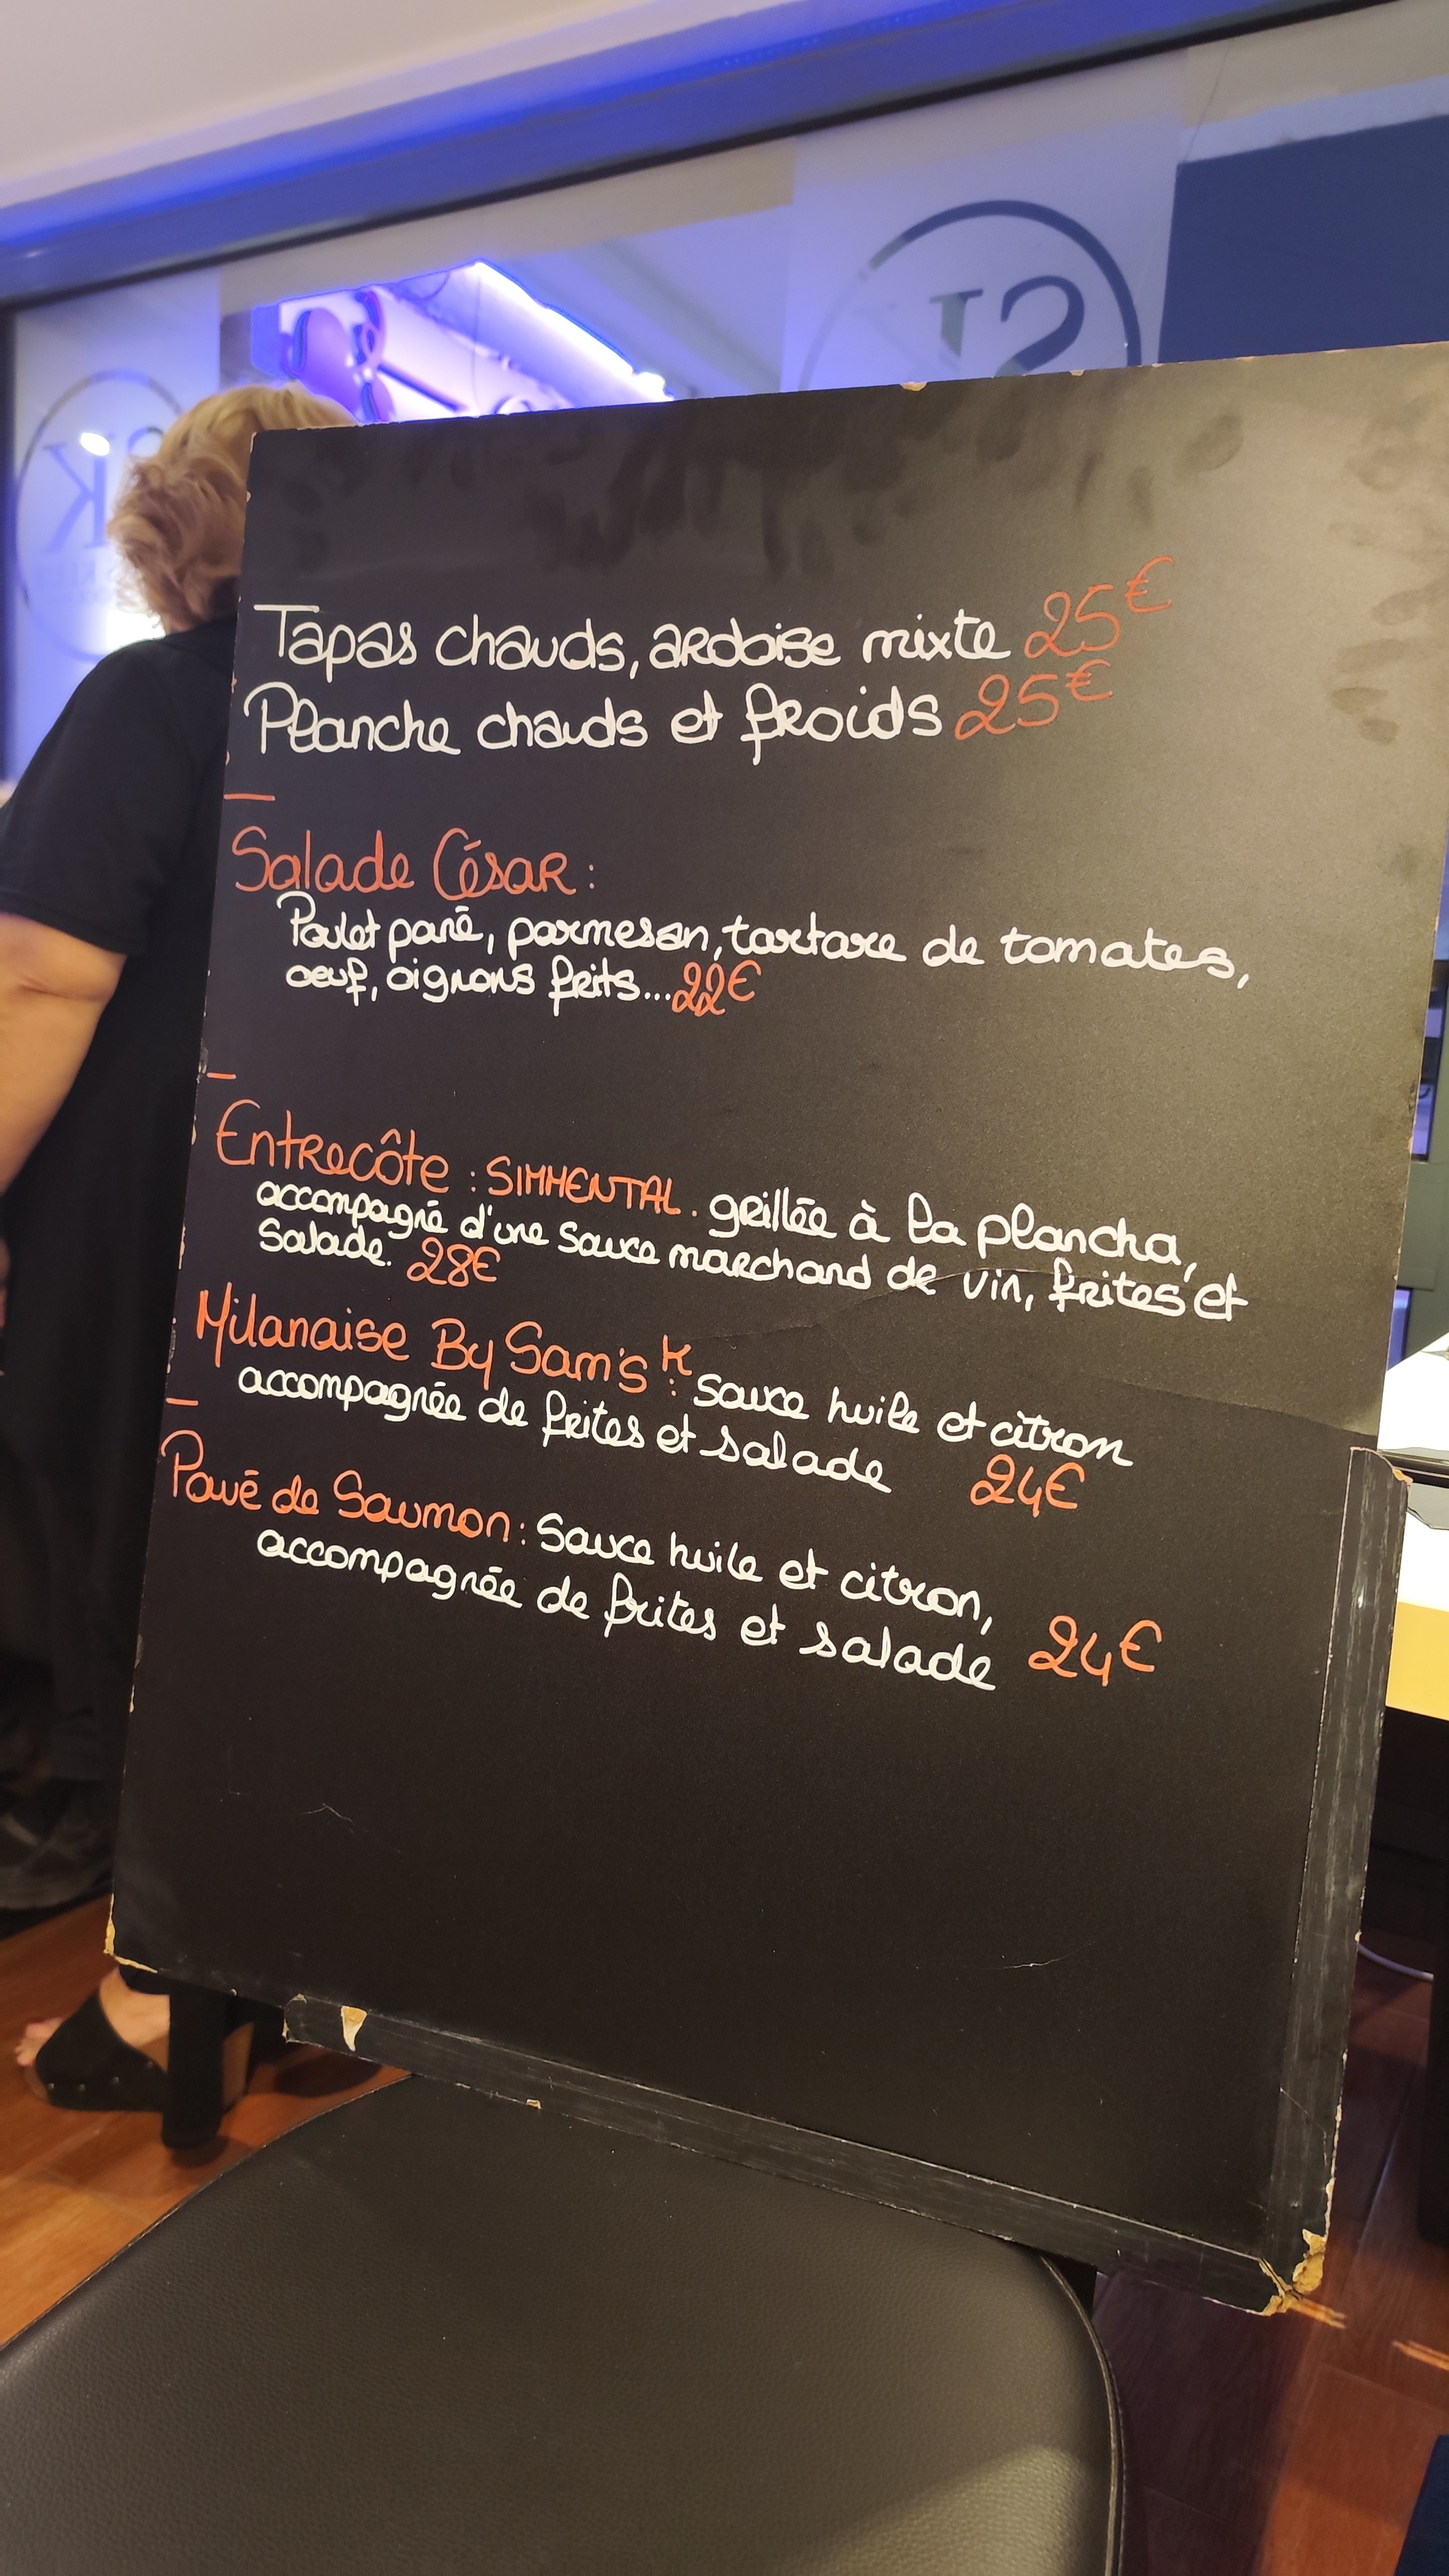 Tapas chauds, ardoise mixte 25€
Planche chauds et froids 25€
Salade César :
Poulet pané, parmesan, tartare de tomates,
oeuf, oignons frits... 22€
Entrecôte : SIMMENTAL. grillée à la plancha,
accompagné d'une sauce marchand de vin, frites et
salade. 28€
Milanaise By Sam's K : sauce huile et citron
accompagnée de frites et salade 24€
Pavé de Saumon : sauce huile et citron,
accompagnée de frites et salade 24€